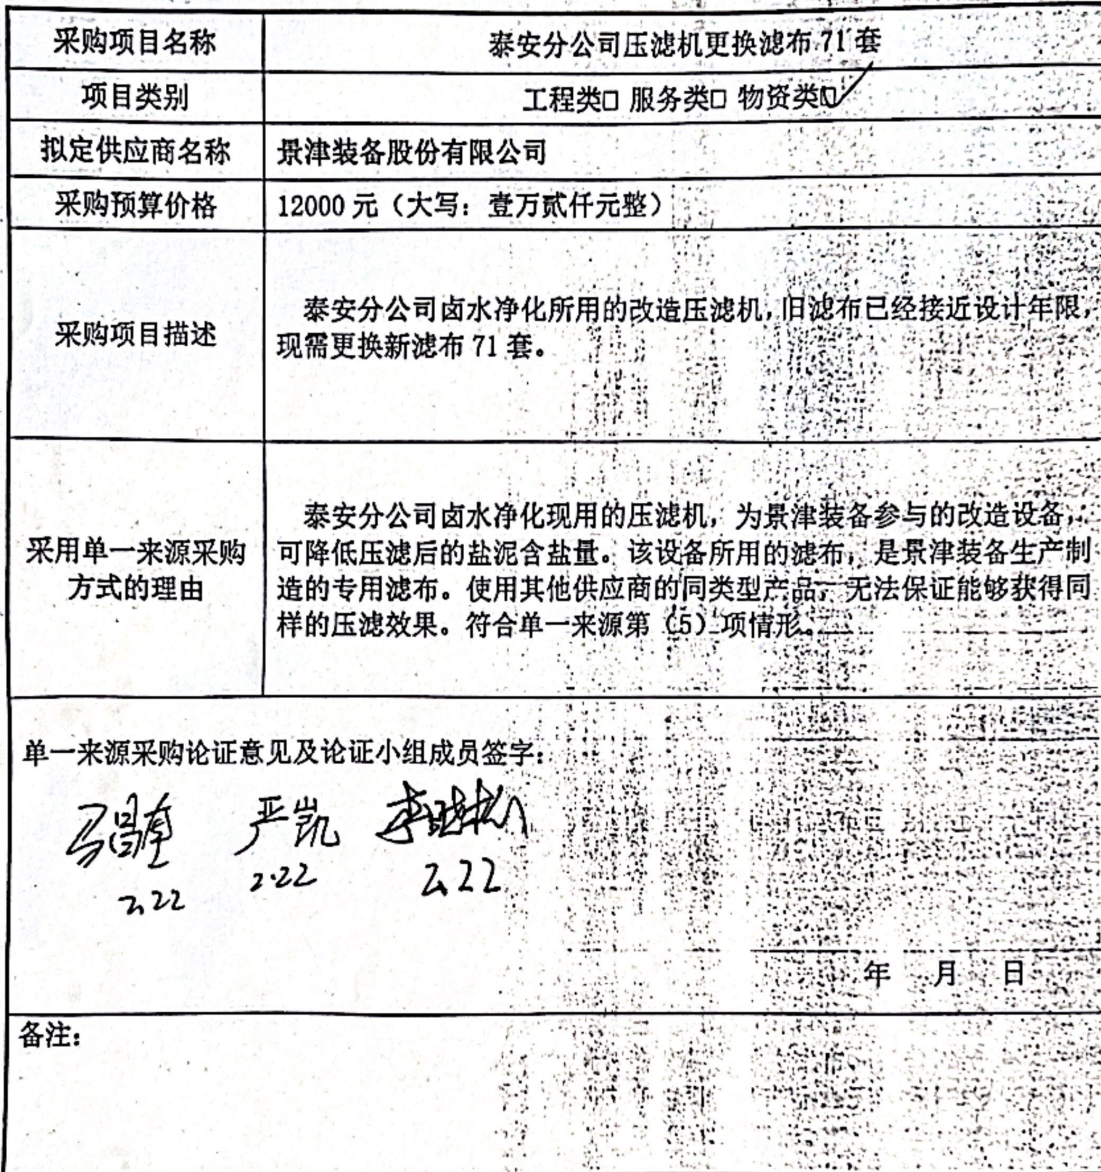 采购项目名称
泰安分公司压滤机更换滤布 71 套
项目类别
工程类□ 服务类□ 物资类☑
拟定供应商名称
景津装备股份有限公司
采购预算价格
12000 元（大写：壹万贰仟元整）
采购项目描述
泰安分公司卤水净化所用的改造压滤机，旧滤布已经接近设计年限，
现需更换新滤布 71 套。
采用单一来源采购
方式的理由
泰安分公司卤水净化现用的压滤机，为景津装备参与的改造设备，
可降低压滤后的盐泥含盐量。该设备所用的滤布，是景津装备生产制
造的专用滤布。使用其他供应商的同类型产品，无法保证能够获得同
样的压滤效果。符合单一来源第（5）项情形。
单一来源采购论证意见及论证小组成员签字：
严凯
2.22 2.22 2.22
年 月 日
备注：